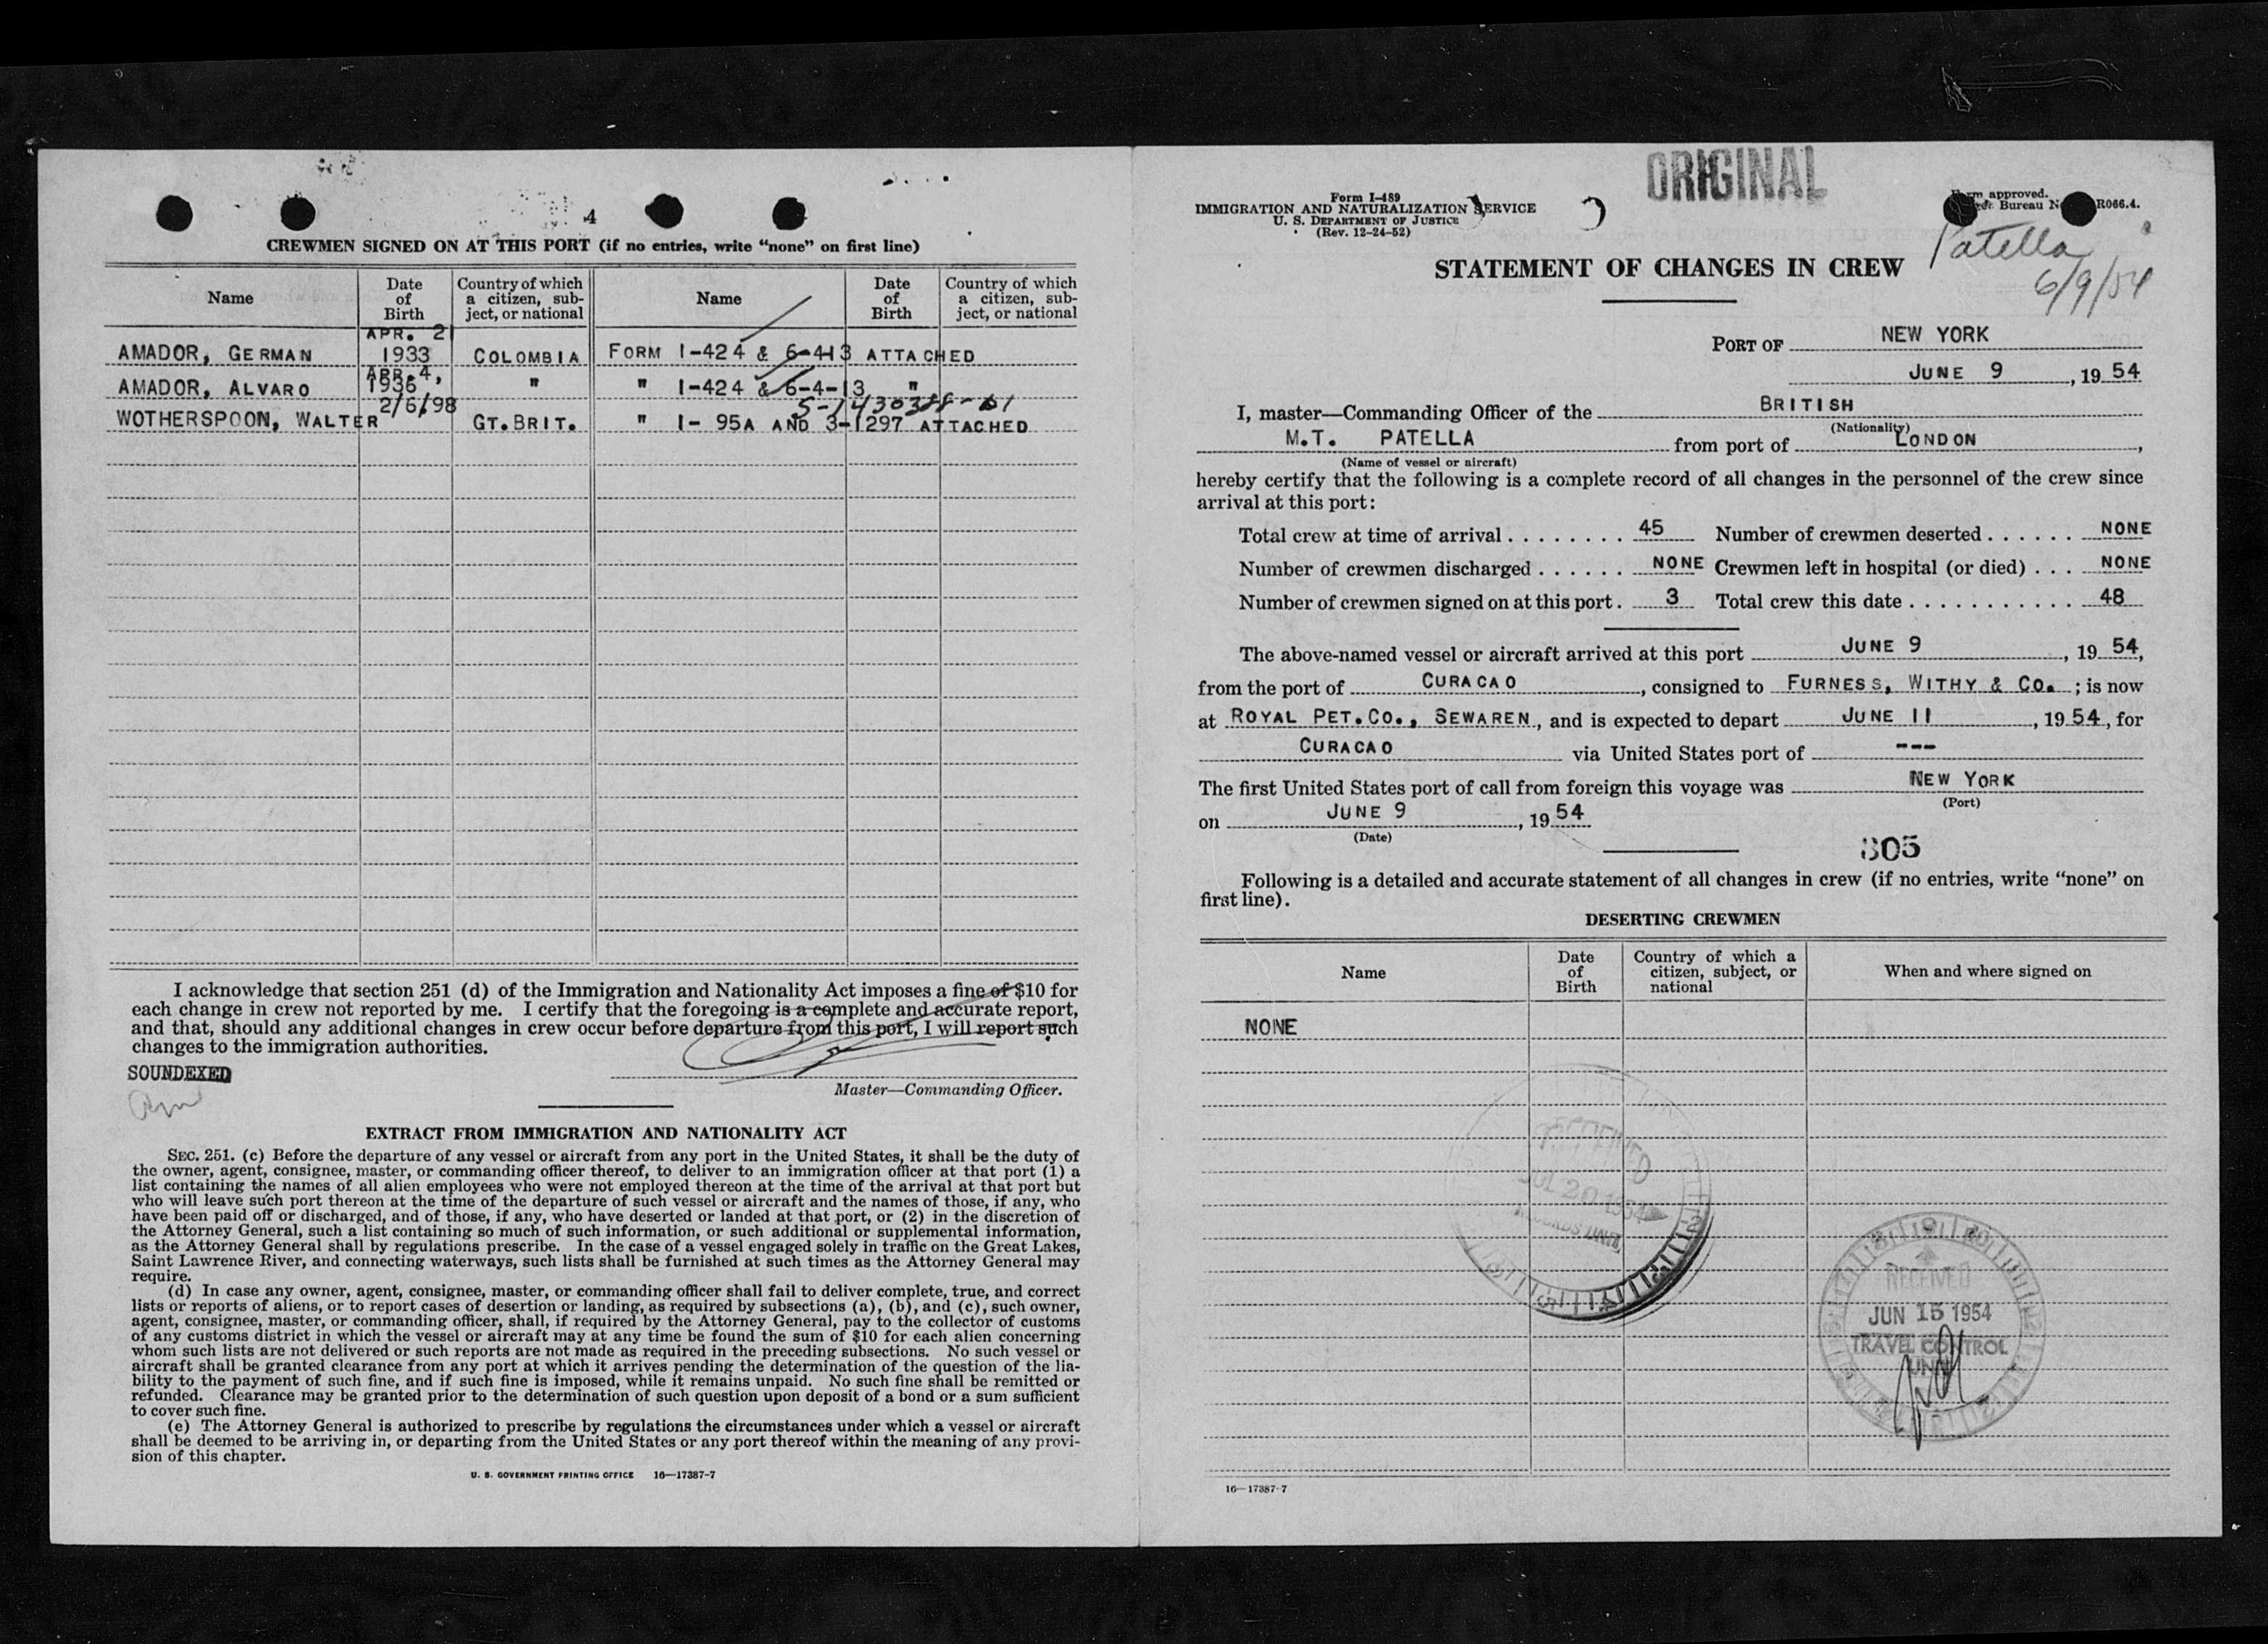 4
CREWMEN SIGNED ON AT THIS PORT (if no entries, write “none” on first line)
Name Date of Birth Country of which a citizen, subject, or national Name Date of Birth Country of which a citizen, subject, or national
AMADOR, GERMAN APR. 2 1933 COLOMBIA FORM I-424 & 6-413 ATTACHED
AMADOR, ALVARO APR. 4, 1936 " " I-424 & 6-4-13 "
WOTHERSPOON, WALTER 2/6/98 GT. BRIT. " I-95A AND 3-1297 ATTACHED
I acknowledge that section 251 (d) of the Immigration and Nationality Act imposes a fine of $10 for
each change in crew not reported by me. I certify that the foregoing is a complete and accurate report,
and that, should any additional changes in crew occur before departure from this port, I will report such
changes to the immigration authorities.
SOUNDEXED
Master—Commanding Officer.
EXTRACT FROM IMMIGRATION AND NATIONALITY ACT
SEC. 251. (c) Before the departure of any vessel or aircraft from any port in the United States, it shall be the duty of
the owner, agent, consignee, master, or commanding officer thereof, to deliver to an immigration officer at that port (1) a
list containing the names of all alien employees who were not employed thereon at the time of the arrival at that port but
who will leave such port thereon at the time of the departure of such vessel or aircraft and the names of those, if any, who
have been paid off or discharged, and of those, if any, who have deserted or landed at that port, or (2) in the discretion of
the Attorney General, such a list containing so much of such information, or such additional or supplemental information,
as the Attorney General shall by regulations prescribe. In the case of a vessel engaged solely in traffic on the Great Lakes,
Saint Lawrence River, and connecting waterways, such lists shall be furnished at such times as the Attorney General may
require.
(d) In case any owner, agent, consignee, master, or commanding officer shall fail to deliver complete, true, and correct
lists or reports of aliens, or to report cases of desertion or landing, as required by subsections (a), (b), and (c), such owner,
agent, consignee, master, or commanding officer, shall, if required by the Attorney General, pay to the collector of customs
of any customs district in which the vessel or aircraft may at any time be found the sum of $10 for each alien concerning
whom such lists are not delivered or such reports are not made as required in the preceding subsections. No such vessel or
aircraft shall be granted clearance from any port at which it arrives pending the determination of the question of the lia-
bility to the payment of such fine, and if such fine is imposed, while it remains unpaid. No such fine shall be remitted or
refunded. Clearance may be granted prior to the determination of such question upon deposit of a bond or a sum sufficient
to cover such fine.
(e) The Attorney General is authorized to prescribe by regulations the circumstances under which a vessel or aircraft
shall be deemed to be arriving in, or departing from the United States or any port thereof within the meaning of any provi-
sion of this chapter.
U. S. GOVERNMENT PRINTING OFFICE 16—17387-7
ORIGINAL
Form I-489
IMMIGRATION AND NATURALIZATION SERVICE
U. S. DEPARTMENT OF JUSTICE
(Rev. 12-24-52)
approved.
Bureau R066.4.
Patella
6/9/54
STATEMENT OF CHANGES IN CREW
PORT OF NEW YORK
JUNE 9, 1954
I, master—Commanding Officer of the BRITISH
(Nationality)
M.T. PATELLA from port of LONDON,
(Name of vessel or aircraft)
hereby certify that the following is a complete record of all changes in the personnel of the crew since
arrival at this port:
Total crew at time of arrival 45 Number of crewmen deserted NONE
Number of crewmen discharged NONE Crewmen left in hospital (or died) NONE
Number of crewmen signed on at this port 3 Total crew this date 48
The above-named vessel or aircraft arrived at this port JUNE 9, 1954,
from the port of CURACAO, consigned to FURNESS, WITHY & CO.; is now
at ROYAL PET. CO., SEWAREN, and is expected to depart JUNE 11, 1954, for
CURACAO via United States port of ---
The first United States port of call from foreign this voyage was NEW YORK
(Port)
on JUNE 9, 1954
(Date)
305
Following is a detailed and accurate statement of all changes in crew (if no entries, write “none” on
first line).
DESERTING CREWMEN
Name Date of Birth Country of which a citizen, subject, or national When and where signed on
NONE
RECEIVED
JUL 20 1954
RECORDS UNIT
RECEIVED
JUN 15 1954
TRAVEL CONTROL
UNIT
16—17387-7